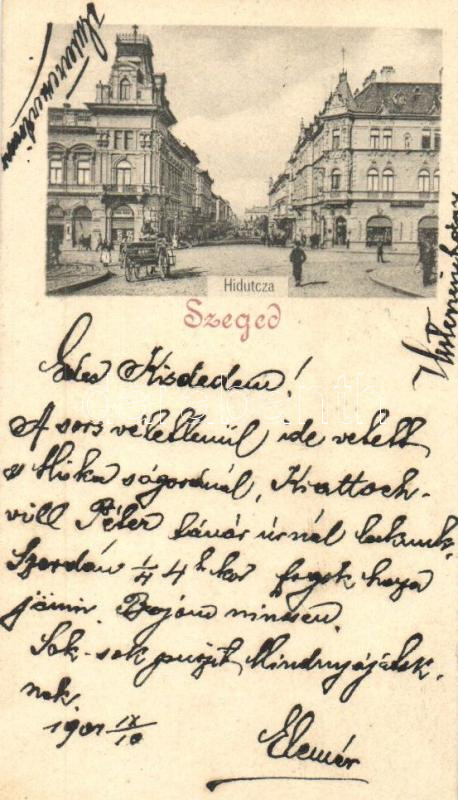 Hidutcza
Szeged
Édes Kisdedem!
A sors véletlenül ide vetett
s Miska sógoránál, Krattoch-
vill Péter tanár úrnál lakunk.
Szerdán 1/4 4h kor fogok haza
jönni. Bajom nincsen.
Sok-sok puszit Mindnyájatok-
nak.
1901 IX/10
Elemér
darabanth